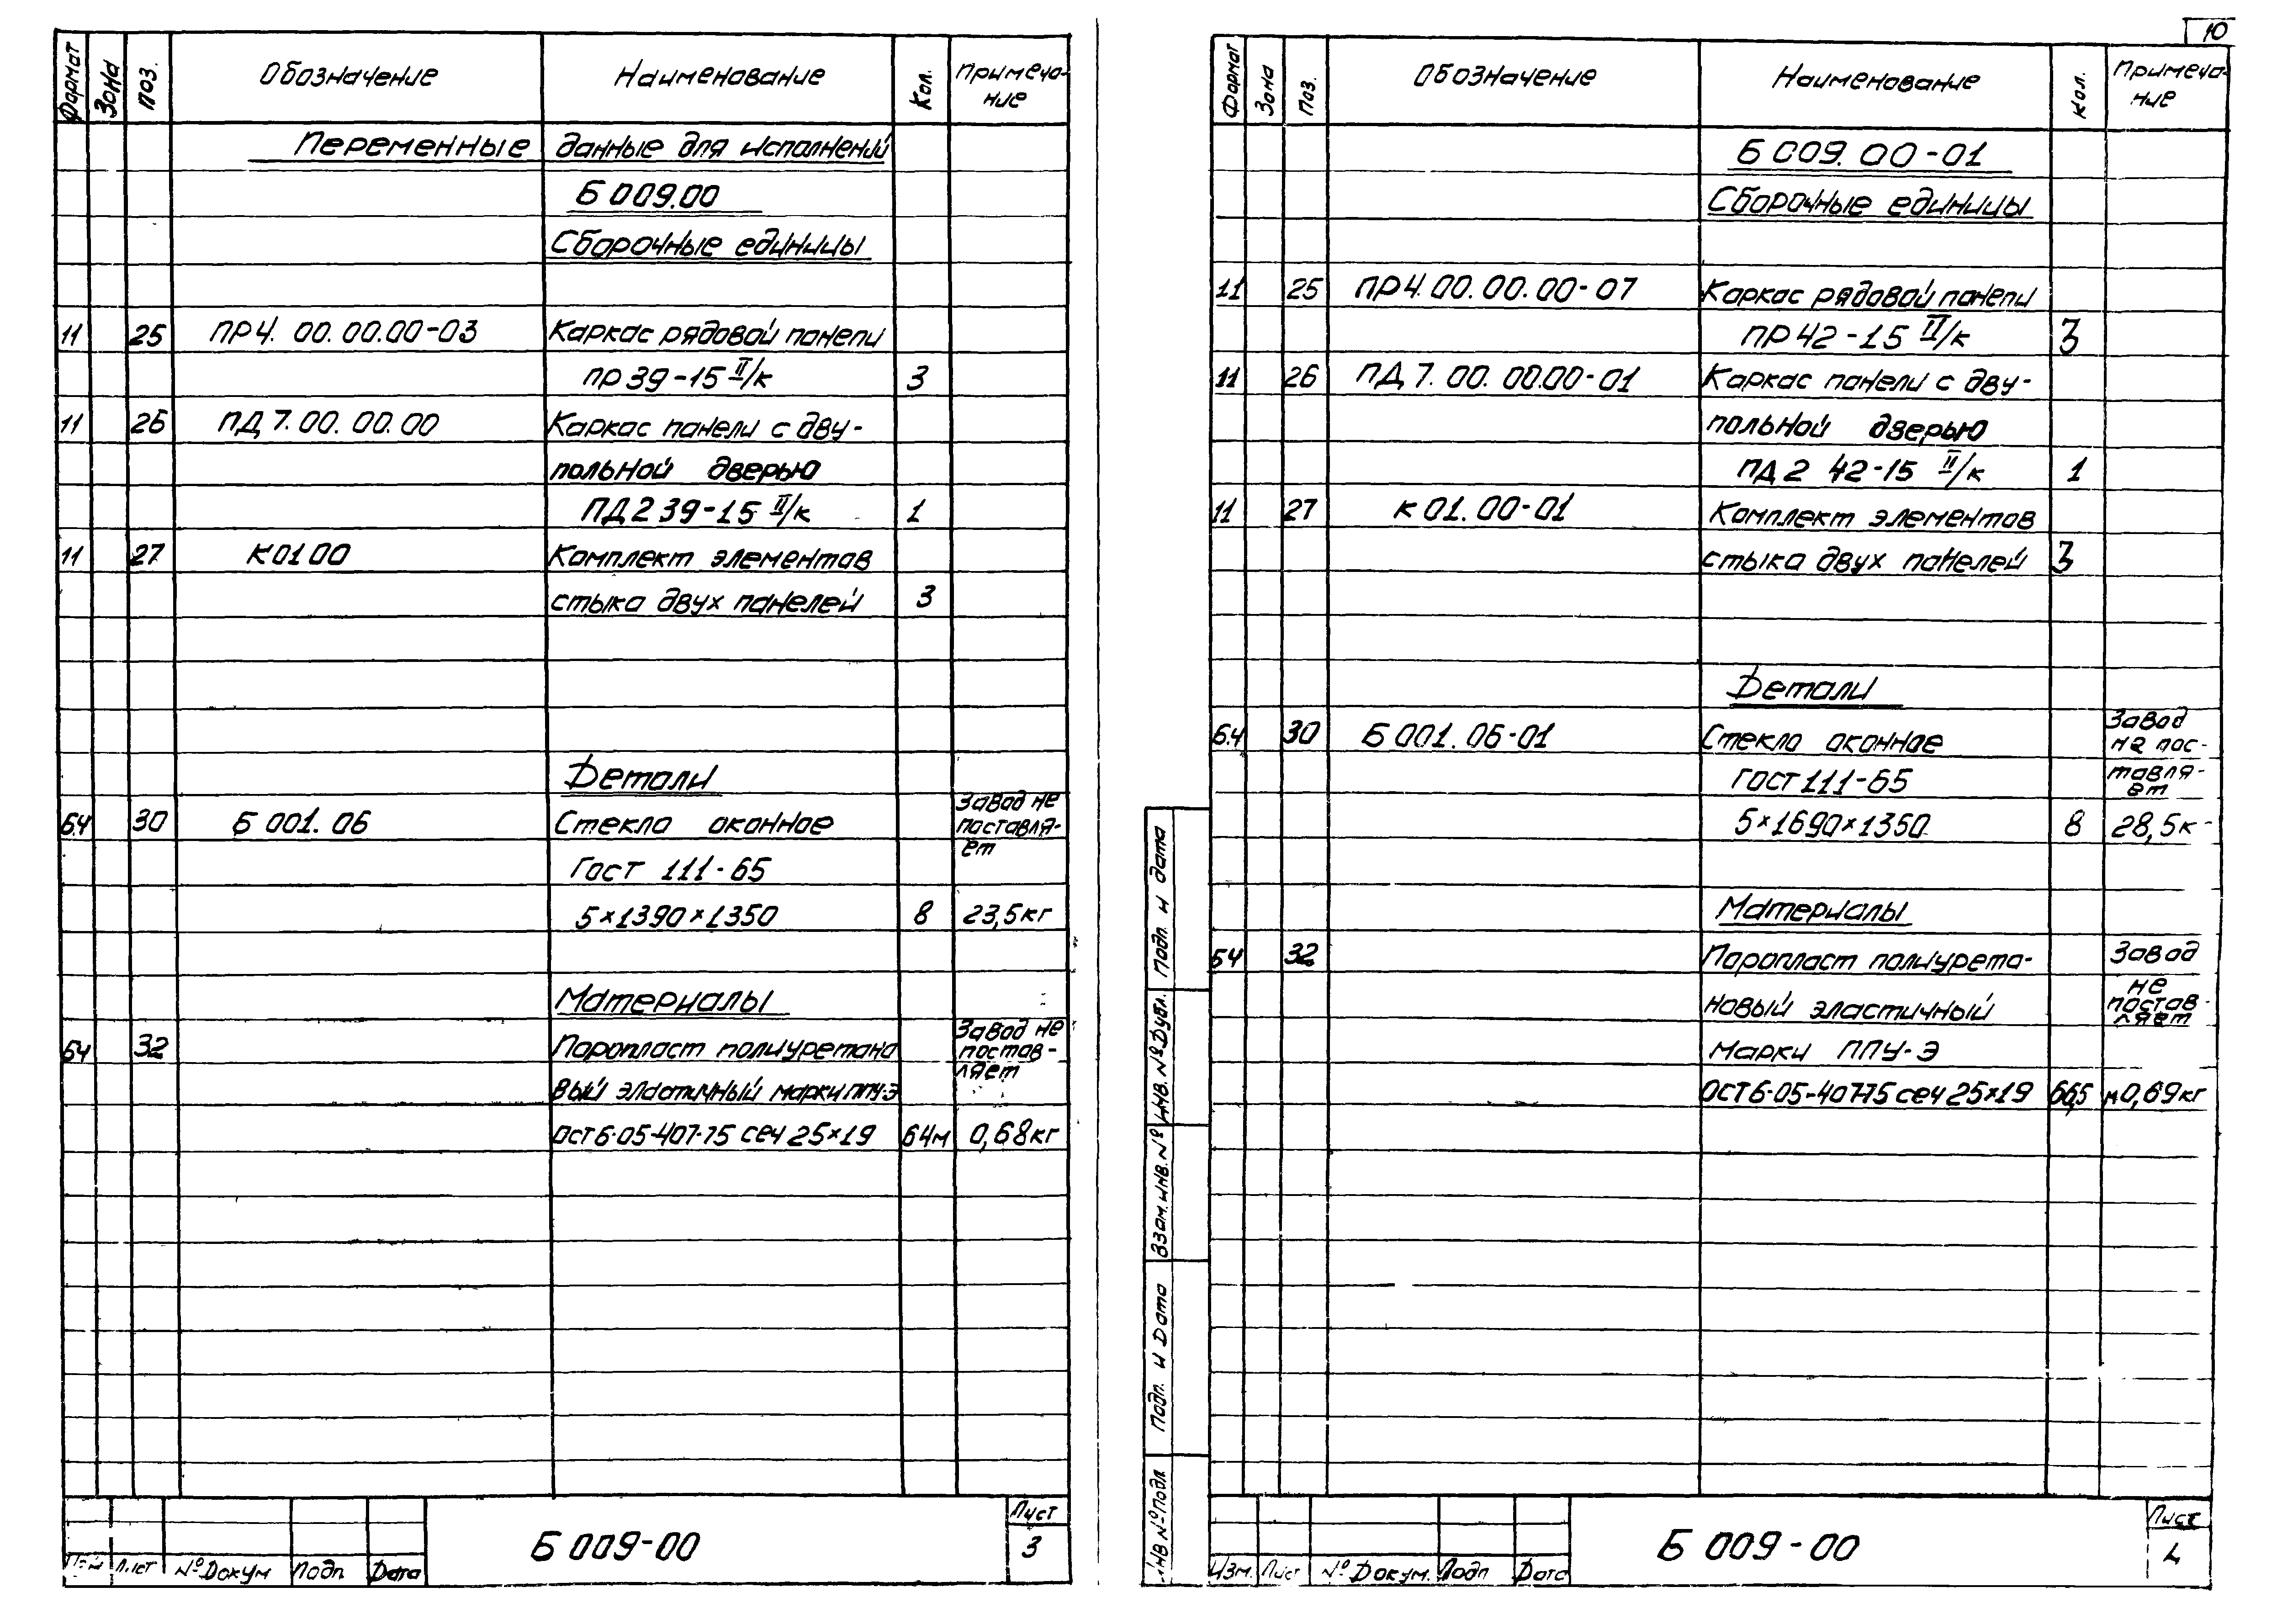 Формат Зона Поз. Обозначение Наименование Кол. Примеча-
ние
Переменные данные для исполнений
Б 009.00
Сборочные единицы
11 25 ПР4. 00. 00.00-03 Каркас рядовой панели
ПР 39-15 II/к 3
11 26 ПД 7. 00. 00. 00 Каркас панели с дву-
польной дверью
ПД2 39-15 II/к 1
11 27 К01 00 Комплект элементов
стыка двух панелей 3
Детали
Б4 30 Б 001. 06 Стекло оконное Завод не
поставля-
ет
Гост 111-65
5×1390×1350 8 23,5кг
Материалы
Б4 32 Поропласт полиуретано Завод не
постав-
ляет
вый эластичный марки ППУ-Э
Ост 6-05-407-75 сеч 25×19 64м 0,68кг
Лист
Б 009-00 3
Лист №Докум Подп Дата
10
Формат Зона Поз. Обозначение Наименование Кол. Примеча-
ние
Б 009. 00-01
Сборочные единицы
11 25 ПР4. 00. 00. 00-07 Каркас рядовой панели
ПР 42-15 II/к 3
11 26 ПД 7. 00. 00.00-01 Каркас панели с дву-
польной дверью
ПД 2 42-15 II/к 1
11 27 К 01. 00-01 Комплект элементов
стыка двух панелей 3
Детали
Б.4 30 Б 001. 06-01 Стекло оконное Завод
не пос-
тавля-
ет
Гост 111-65
5×1690×1350 8 28,5к
Материалы
Б4 32 Поропласт полиурета- Завод
не
постав-
ляет
новый эластичный
марки ППУ-Э
ОСТ 6-05-407-75 сеч 25×19 66,5 м 0,69кг
Подп. и дата
Инв. №Дубл.
Взам. инв. №
Подп. и Дата
Инв №Подл
Лист
Б 009-00 4
Изм. Лист №Докум. Подп Дата